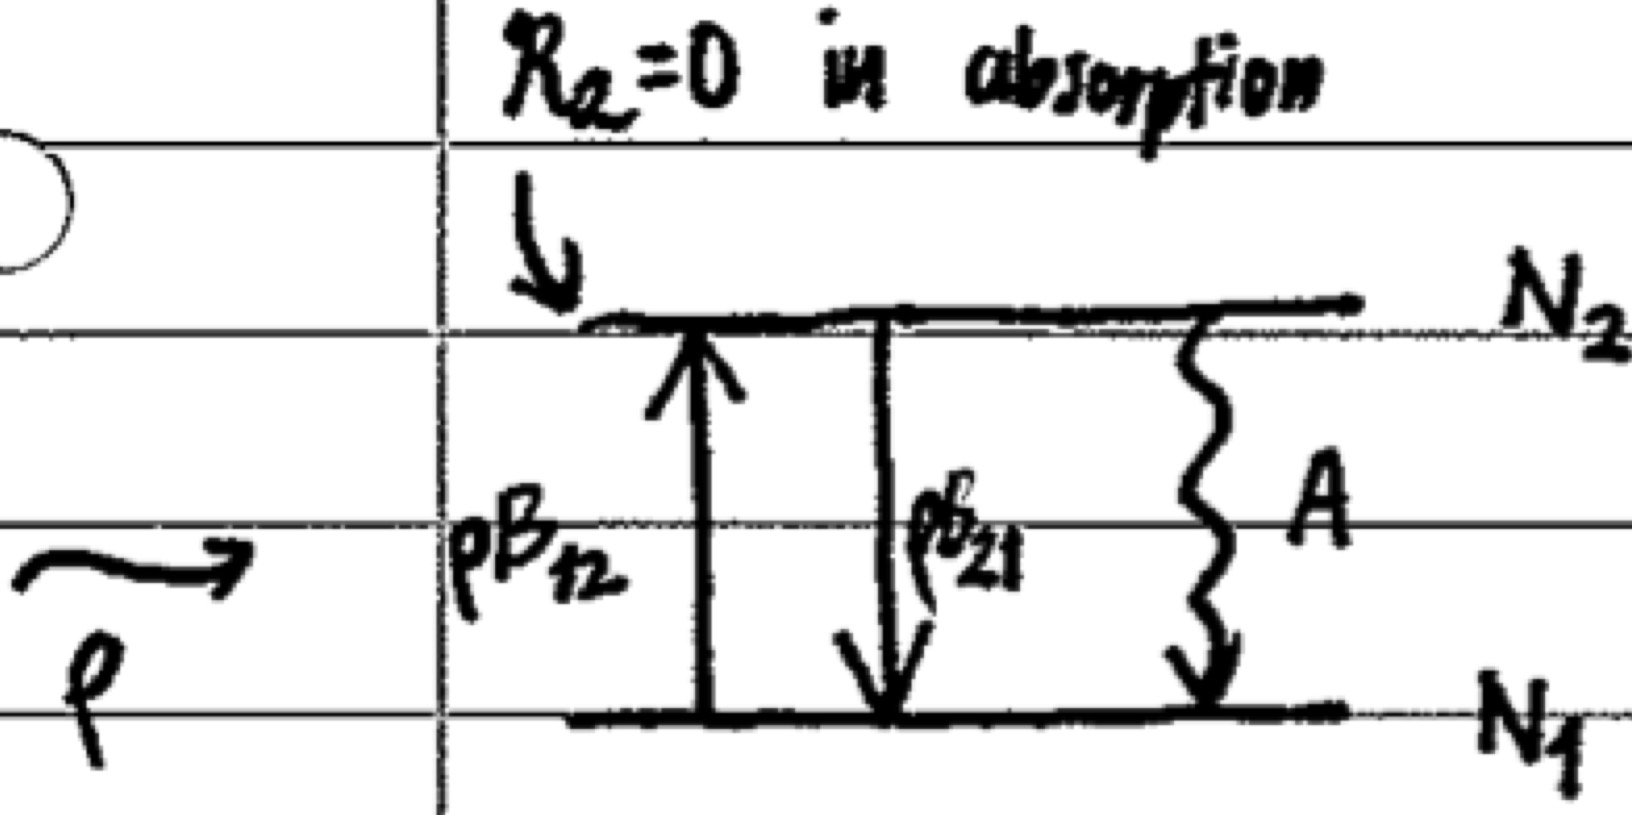 R₂=0 in absorption
N₂
ρB₁₂
ρB₂₁
A
ρ
N₁